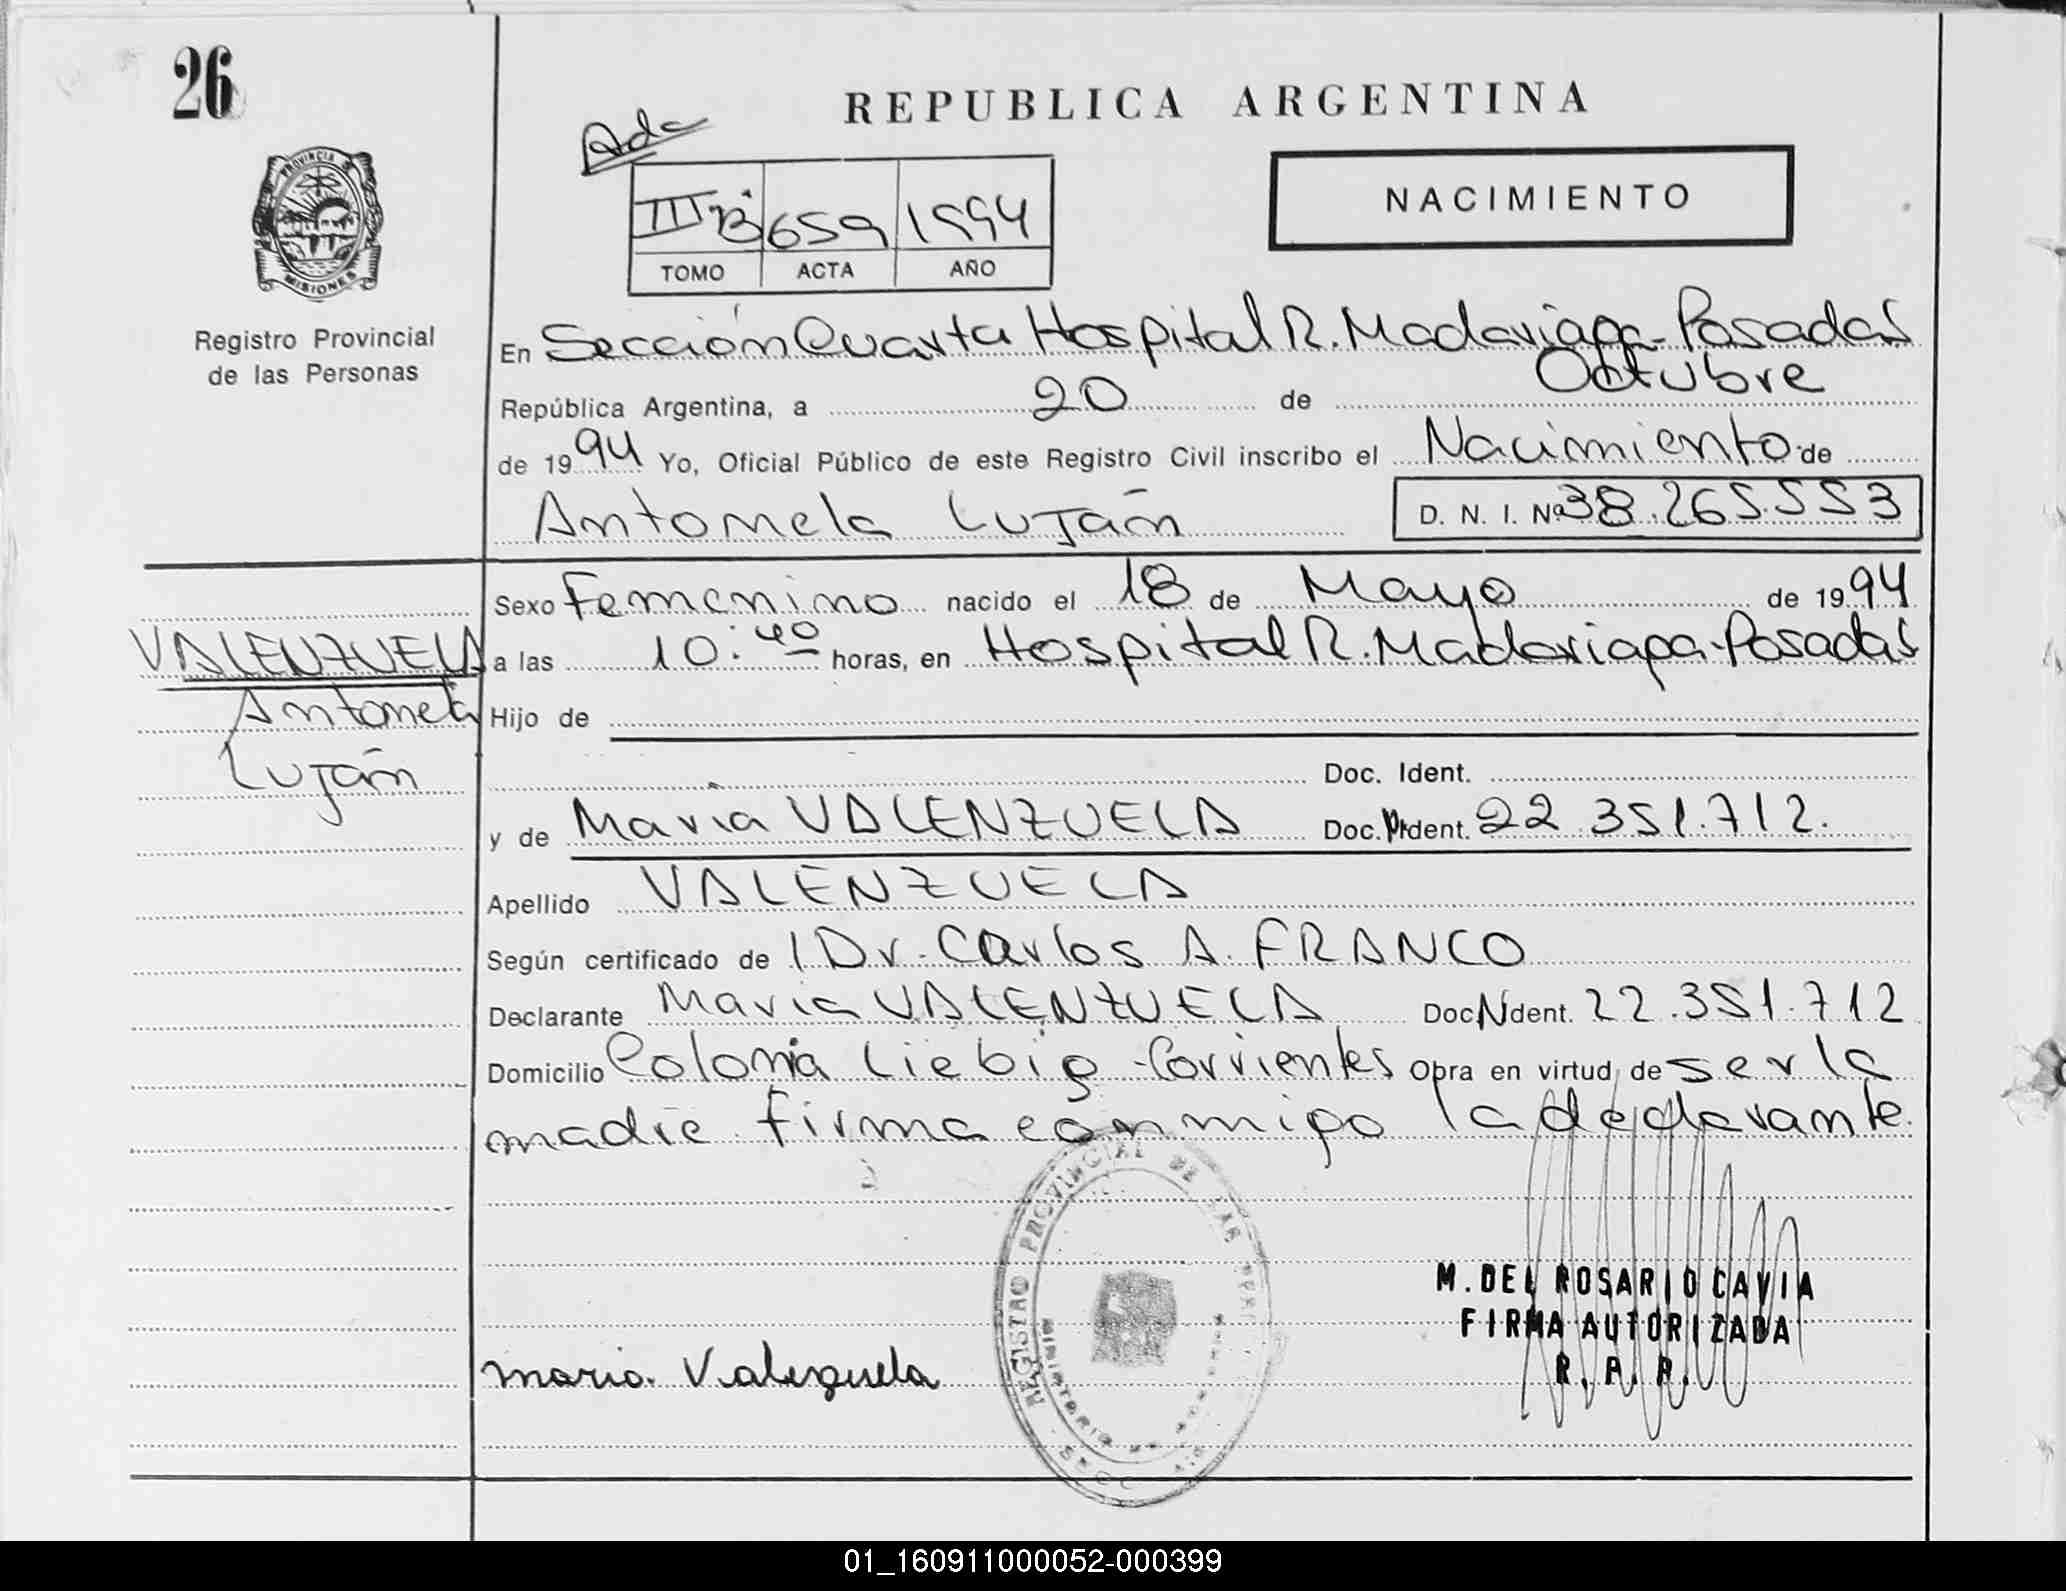 26
REPUBLICA ARGENTINA
NACIMIENTO
III B 659 1994
TOMO ACTA AÑO
PROVINCIA DE
MISIONES
Registro Provincial
de las Personas
En Sección Cuarta Hospital R. Madariaga - Posadas
República Argentina, a 20 de Octubre
de 1994 Yo, Oficial Público de este Registro Civil inscribo el Nacimiento de
Antonela Luján D. N. I. Nº 38.265.553
Sexo Femenino nacido el 18 de Mayo de 1994
VALENZUELA
Antonela
Luján
a las 10:40 horas, en Hospital R. Madariaga - Posadas
Hijo de
Doc. Ident.
y de Maria VALENZUELA Doc. Ident. 22.351.712.
Apellido VALENZUELA
Según certificado de l Dr. Carlos A. FRANCO
Declarante Maria VALENZUELA Doc. Ident. 22.351.712
Domicilio Colonia Liebig - Corrientes Obra en virtud de ser la
madre firma conmigo la declarante.
REGISTRO PROVINCIAL DE LAS
M. DEL ROSARIO CAVIA
FIRMA AUTORIZADA
R. P. P.
maria Valenzuela
01_160911000052-000399